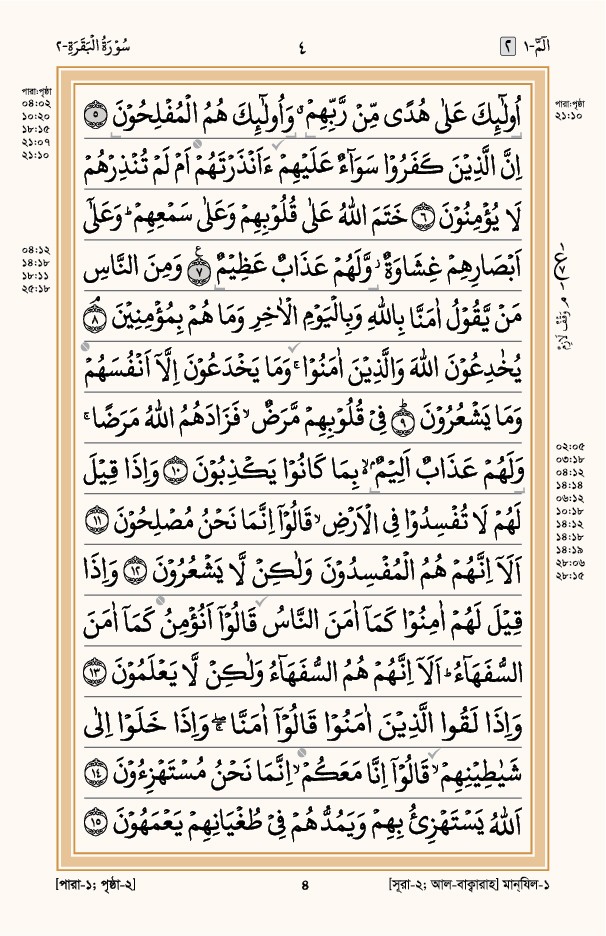 الٓمّٓ-١
٢
٤
سُوْرَةُ الْبَقَرَةِ-٢
পারা:পৃষ্ঠা
০৪:০২
১০:২০
১৮:১৫
২১:০৭
২১:১০
পারা:পৃষ্ঠা
২১:১০
اُولٰٓئِكَ عَلٰى هُدًى مِّنْ رَّبِّهِمْ ۙ وَاُولٰٓئِكَ هُمُ الْمُفْلِحُوْنَ ٥
اِنَّ الَّذِيْنَ كَفَرُوْا سَوَآءٌ عَلَيْهِمْ ءَاَنْذَرْتَهُمْ اَمْ لَمْ تُنْذِرْهُمْ
لَا يُؤْمِنُوْنَ ٦ خَتَمَ اللّٰهُ عَلٰى قُلُوْبِهِمْ وَعَلٰى سَمْعِهِمْ ؕ وَعَلٰٓى
اَبْصَارِهِمْ غِشَاوَةٌ ؗ وَّلَهُمْ عَذَابٌ عَظِيْمٌ ٧ ع وَمِنَ النَّاسِ
০৪:১২
১৪:১৮
১৮:১১
২৫:১৮
ع
٧
م وَقْفْ لَازِمْ
مَنْ يَّقُوْلُ اٰمَنَّا بِاللّٰهِ وَبِالْيَوْمِ الْاٰخِرِ وَمَا هُمْ بِمُؤْمِنِيْنَ ۘ ٨
يُخٰدِعُوْنَ اللّٰهَ وَالَّذِيْنَ اٰمَنُوْا ۚ وَمَا يَخْدَعُوْنَ اِلَّآ اَنْفُسَهُمْ
وَمَا يَشْعُرُوْنَ ؕ ٩ فِيْ قُلُوْبِهِمْ مَّرَضٌ ۙ فَزَادَهُمُ اللّٰهُ مَرَضًا ۚ
وَلَهُمْ عَذَابٌ اَلِيْمٌ ۢ ۙ بِمَا كَانُوْا يَكْذِبُوْنَ ١٠ وَاِذَا قِيْلَ
لَهُمْ لَا تُفْسِدُوْا فِى الْاَرْضِ ۙ قَالُوْٓا اِنَّمَا نَحْنُ مُصْلِحُوْنَ ١١
اَلَآ اِنَّهُمْ هُمُ الْمُفْسِدُوْنَ وَلٰكِنْ لَّا يَشْعُرُوْنَ ١٢ وَاِذَا
০২:০৫
০৩:১৮
০৪:১২
১৪:১৪
০৬:১২
১০:১৮
১৪:১২
১৪:১৮
১৪:১৯
২৮:০৬
২৮:১৫
قِيْلَ لَهُمْ اٰمِنُوْا كَمَآ اٰمَنَ النَّاسُ قَالُوْٓا اَنُؤْمِنُ كَمَآ اٰمَنَ
السُّفَهَآءُ ؕ اَلَآ اِنَّهُمْ هُمُ السُّفَهَآءُ وَلٰكِنْ لَّا يَعْلَمُوْنَ ١٣
وَاِذَا لَقُوا الَّذِيْنَ اٰمَنُوْا قَالُوْٓا اٰمَنَّا ۖۚ وَاِذَا خَلَوْا اِلٰى
شَيٰطِيْنِهِمْ ۙ قَالُوْٓا اِنَّا مَعَكُمْ ۙ اِنَّمَا نَحْنُ مُسْتَهْزِءُوْنَ ١٤
اَللّٰهُ يَسْتَهْزِئُ بِهِمْ وَيَمُدُّهُمْ فِيْ طُغْيَانِهِمْ يَعْمَهُوْنَ ١٥
[পারা-১; পৃষ্ঠা-২]
৪
[সূরা-২; আল-বাক্বারাহ] মান্‌যিল-১